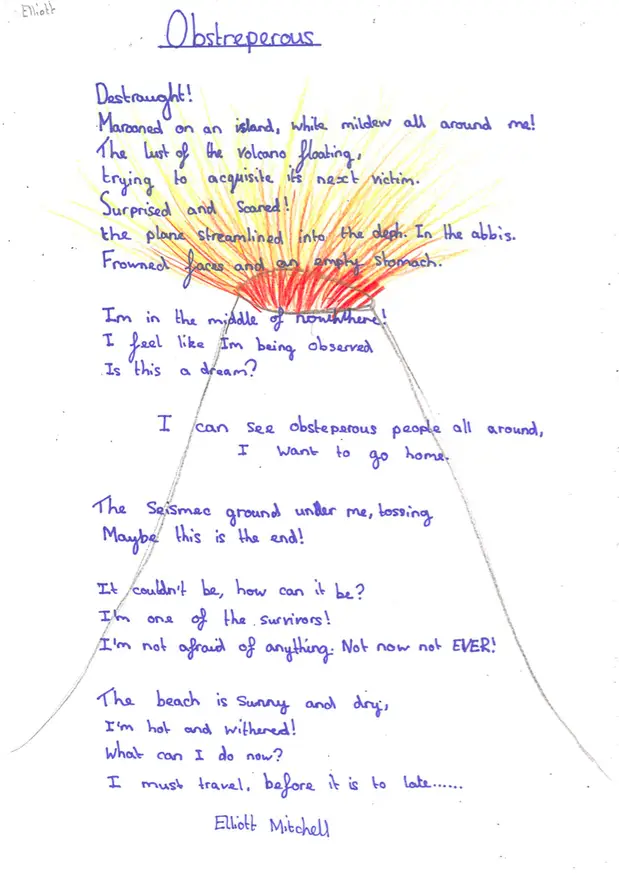 Elliott
Obstreperous
Destraught!
Marooned on an island, white mildew all around me!
The lust of the volcano floating,
trying to acquisite its next victim.
Surprised and Scared!
the plane streamlined into the deph. In the abbis.
Frowned faces and an empty stomach.
Im in the middle of nowhthere!
I feel like Im being observed
Is this a dream?
I can see obsteperous people all around,
I want to go home.
The Seismec ground under me, tossing
Maybe this is the end!
It couldn't be, how can it be?
I'm one of the survivors!
I'm not afraid of anything. Not now not EVER!
The beach is Sunny and dry,
I'm hot and withered!
What can I do now?
I must travel, before it is to late......
Elliott Mitchell